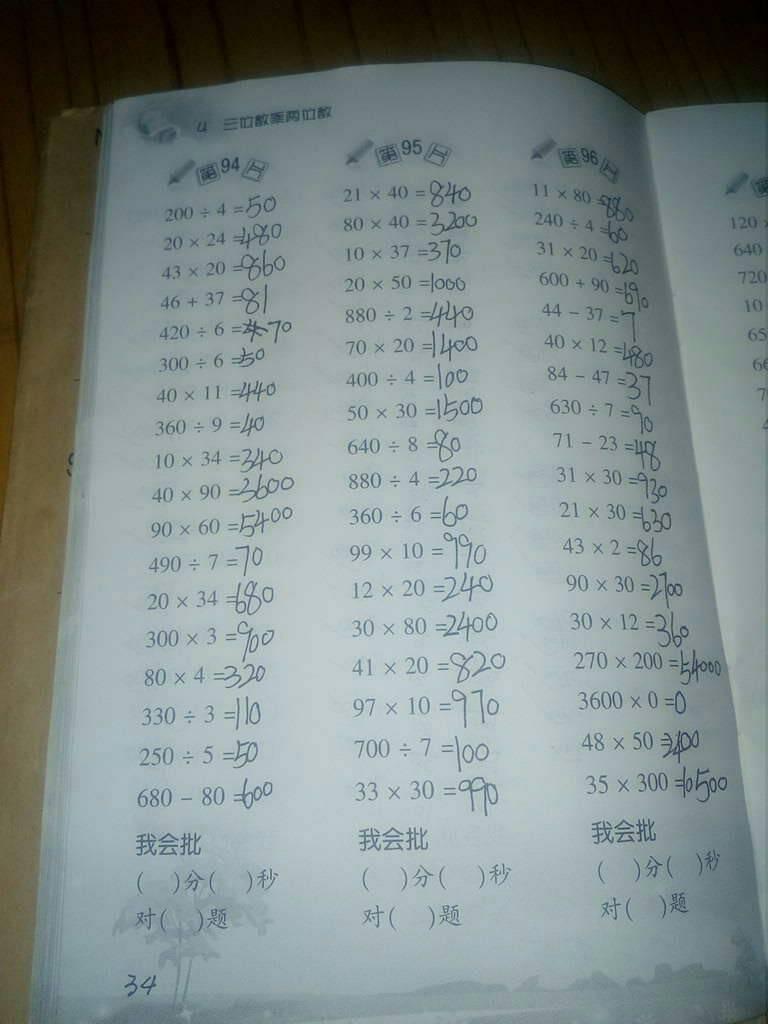 4 三位数乘两位数
第94天
200 ÷ 4 =50
20 × 24 =480
43 × 20 =860
46 + 37 =81
420 ÷ 6 =70
300 ÷ 6 =50
40 × 11 =440
360 ÷ 9 =40
10 × 34 =340
40 × 90 =3600
90 × 60 =5400
490 ÷ 7 =70
20 × 34 =680
300 × 3 =900
80 × 4 =320
330 ÷ 3 =110
250 ÷ 5 =50
680 − 80 =600
我会批
( )分( )秒
对( )题
第95天
21 × 40 =840
80 × 40 =3200
10 × 37 =370
20 × 50 =1000
880 ÷ 2 =440
70 × 20 =1400
400 ÷ 4 =100
50 × 30 =1500
640 ÷ 8 =80
880 ÷ 4 =220
360 ÷ 6 =60
99 × 10 =990
12 × 20 =240
30 × 80 =2400
41 × 20 =820
97 × 10 =970
700 ÷ 7 =100
33 × 30 =990
我会批
( )分( )秒
对( )题
第96天
11 × 80 =880
240 ÷ 4 =60
31 × 20 =620
600 + 90 =690
44 − 37 =7
40 × 12 =480
84 − 47 =37
630 ÷ 7 =90
71 − 23 =48
31 × 30 =930
21 × 30 =630
43 × 2 =86
90 × 30 =2700
30 × 12 =360
270 × 200 =54000
3600 × 0 =0
48 × 50 =2400
35 × 300 =10500
我会批
( )分( )秒
对( )题
120
640
720
10
34